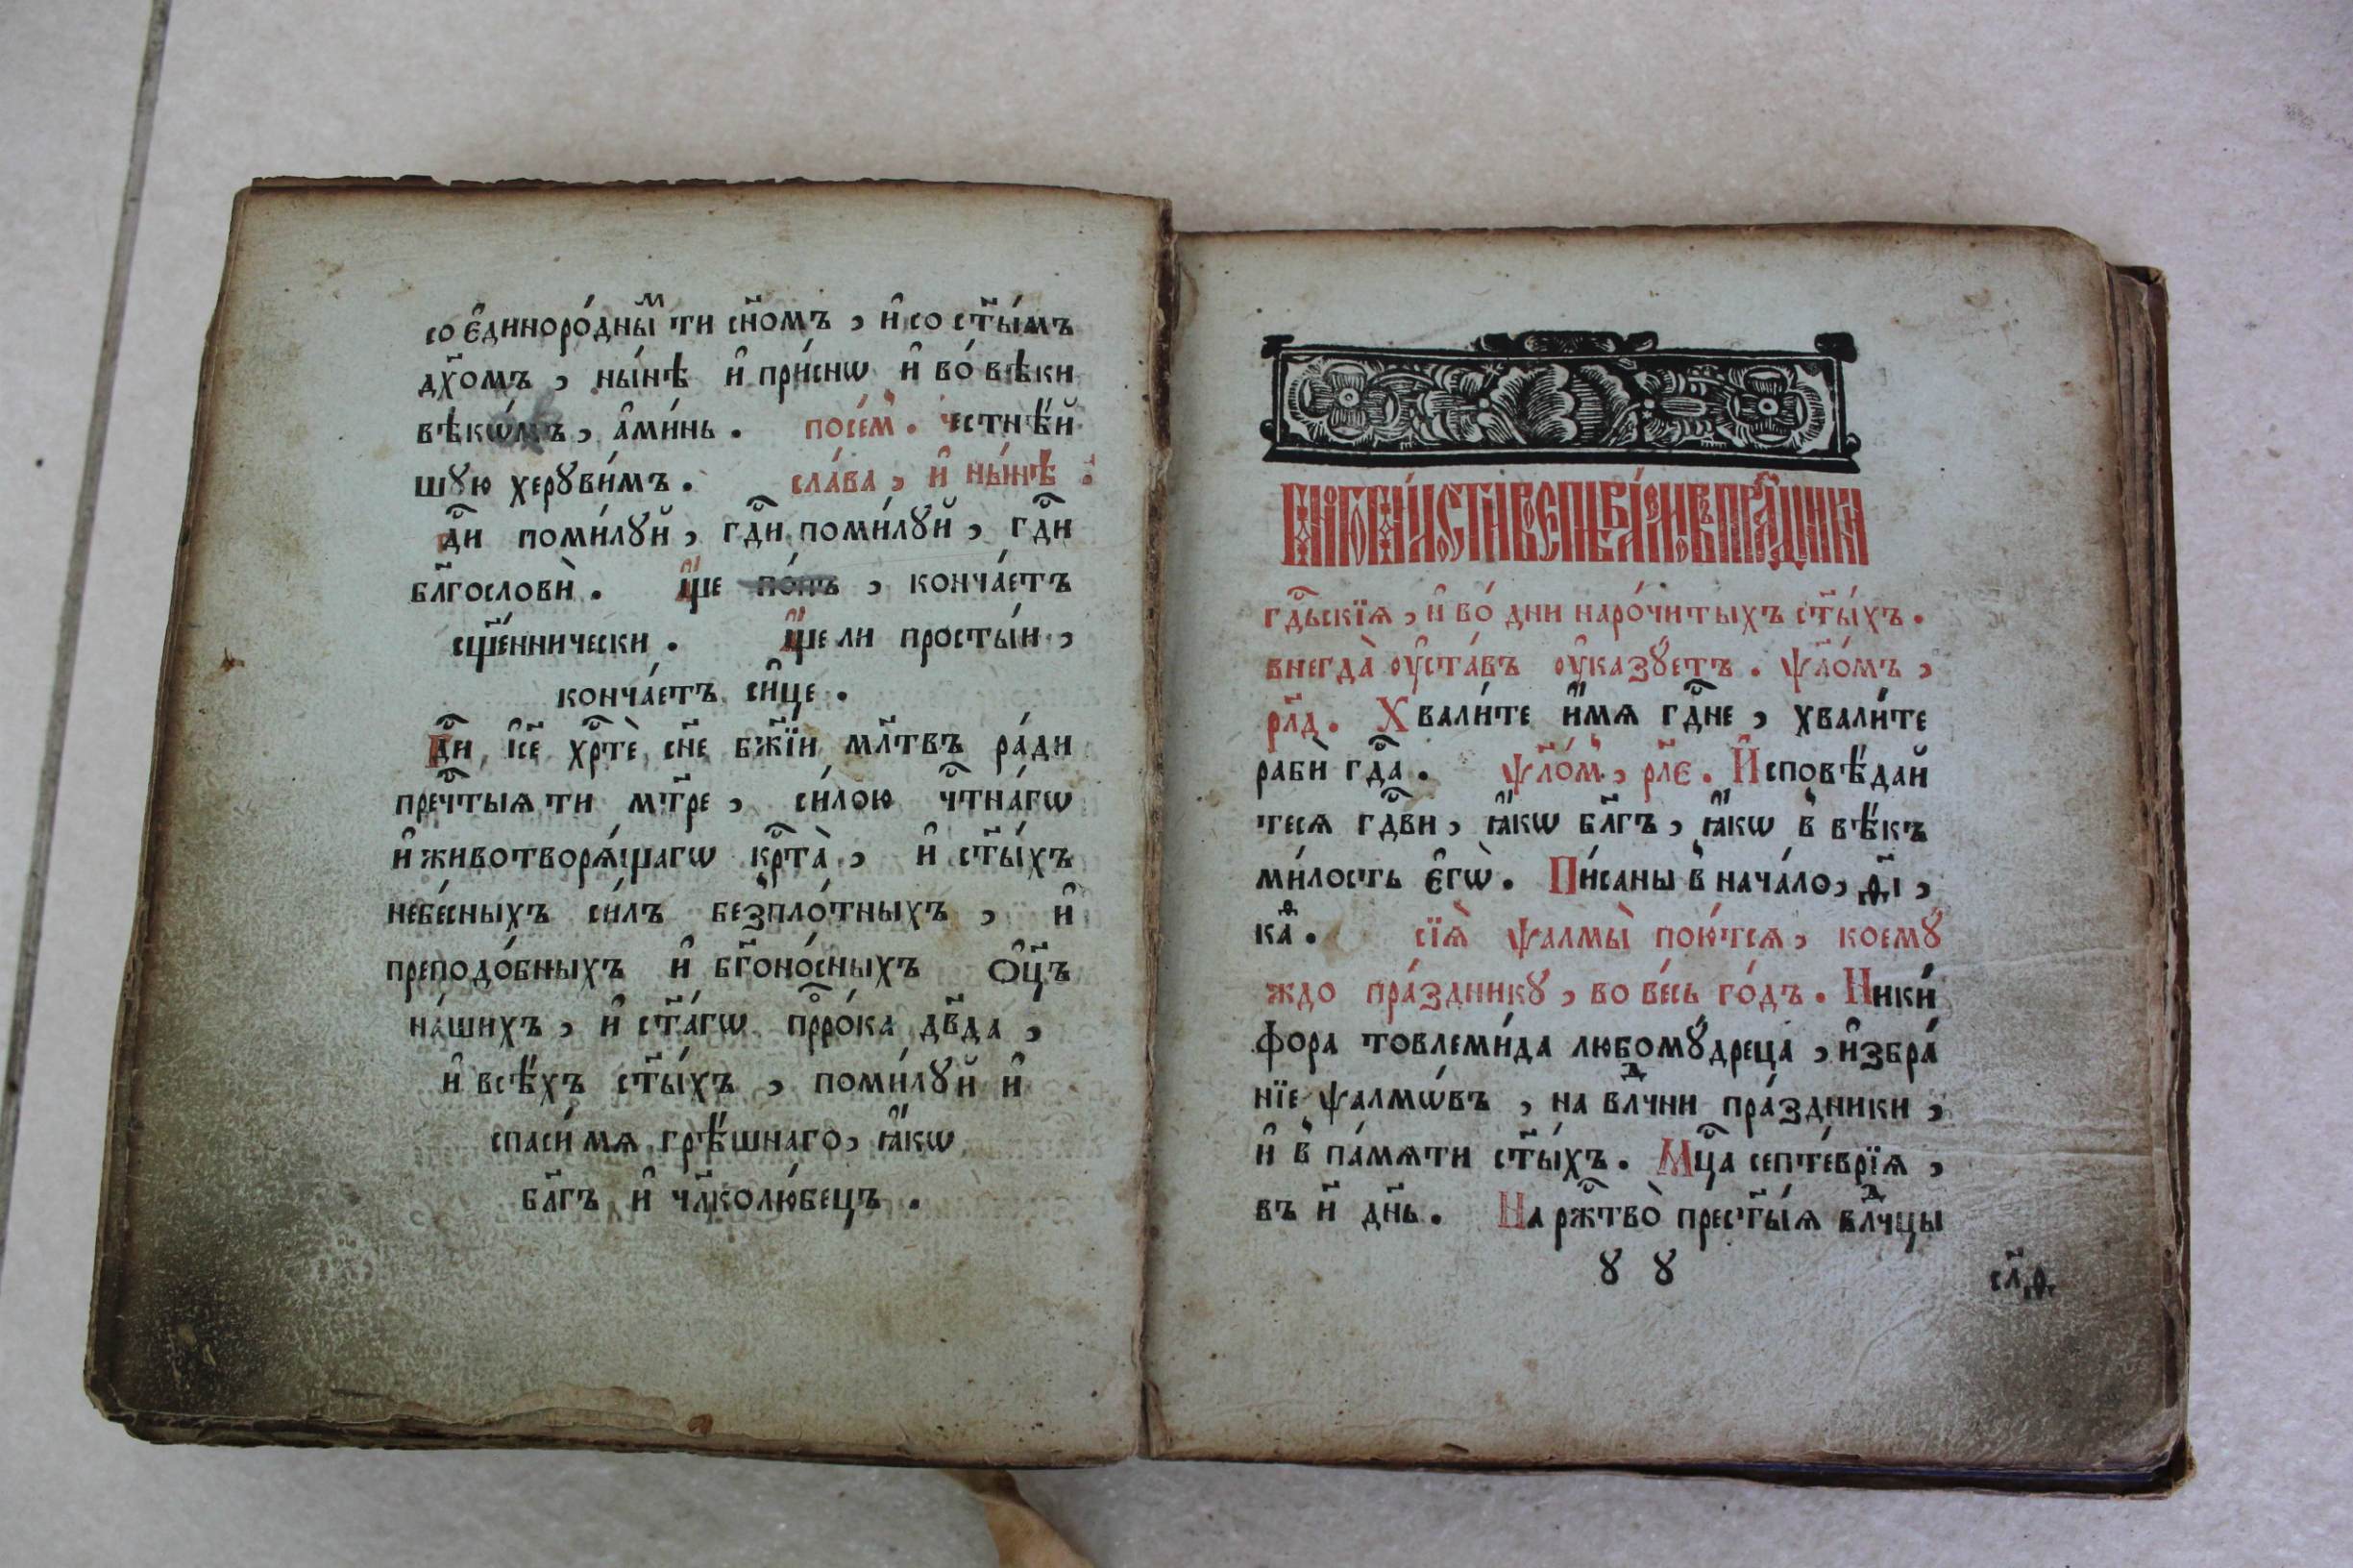 со є҆диноро́дныⷨ ти сн҃омъ, и҆ со ст҃ы́мъ
дх҃омъ, ны́нѣ и҆ при́снѡ и҆ во́ вѣки
вѣкѡ́мъ, а҆ми́нь. посе́м. честнѣ́й
шꙋю херꙋви́мъ. сла́ва, и҆ ны́нѣ:
гдⷭ҇и поми́лꙋй, гдⷭ҇и поми́лꙋй, гдⷭ҇и
бл҃гословѝ. а҆́ще по́пъ, конча́етъ
сщ҃е́ннически. а҆́ще ли просты́и,
конча́етъ си́це.
Гдⷭ҇и, і҆с҃е хрⷭ҇тѐ, сн҃е бж҃їи, мл҃твъ ра́ди
пречⷭ҇тыѧ ти мт҃ре, си́лою чⷭ҇тна́гѡ
и҆ животворѧ́щагѡ крⷭ҇та̀, и҆ ст҃ы́хъ
небе́сныхъ си́лъ безпло́тныхъ, и҆
преподо́бныхъ и҆ бг҃оно́сныхъ ѻ҆ц҃ъ
на́шихъ, и҆ ст҃а́гѡ прⷪ҇ро́ка дв҃да,
и҆ всѣ́хъ ст҃ы́хъ, поми́лꙋй и҆
спаси́ мѧ грѣ́шнаго, ꙗ҆́кѡ
бл҃гъ и҆ чл҃колю́бецъ.
гдⷭ҇ьскїѧ, и҆ во́ дни наро́читыхъ ст҃ы́хъ.
внегда̀ ᲂу҆ста́въ ᲂу҆ка́зꙋетъ. ѱл҃о́мъ,
рл҃д. Хвали́те и҆́мѧ гдⷭ҇не, хвали́те
рабѝ гдⷭ҇а. ѱл҃о́м, рл҃є. И҆сповѣ́дай
тесѧ гдⷭ҇ви, ꙗ҆́кѡ бл҃гъ, ꙗ҆́кѡ в вѣ́къ
ми́лость є҆гѡ̀. Пи́саны в нача́ло, д҃і,
каⷴ.
сїѧ̀ ѱалмы̀ пою́тсѧ, коемꙋ́
ждо пра́зднику, во ве́сь го́дъ. Ники́
фора товлеми́да любомꙋ́дреца, и҆збра́
нїе ѱалмѡ́въ, на влⷣчни пра́здники,
и҆ в па́мѧти ст҃ы́хъ. Мцⷭ҇а септе́врїѧ,
въ и҃ дн҃ь. На ржⷭ҇тво̀ прест҃ы́ѧ влⷣчцы
ꙋ ꙋ